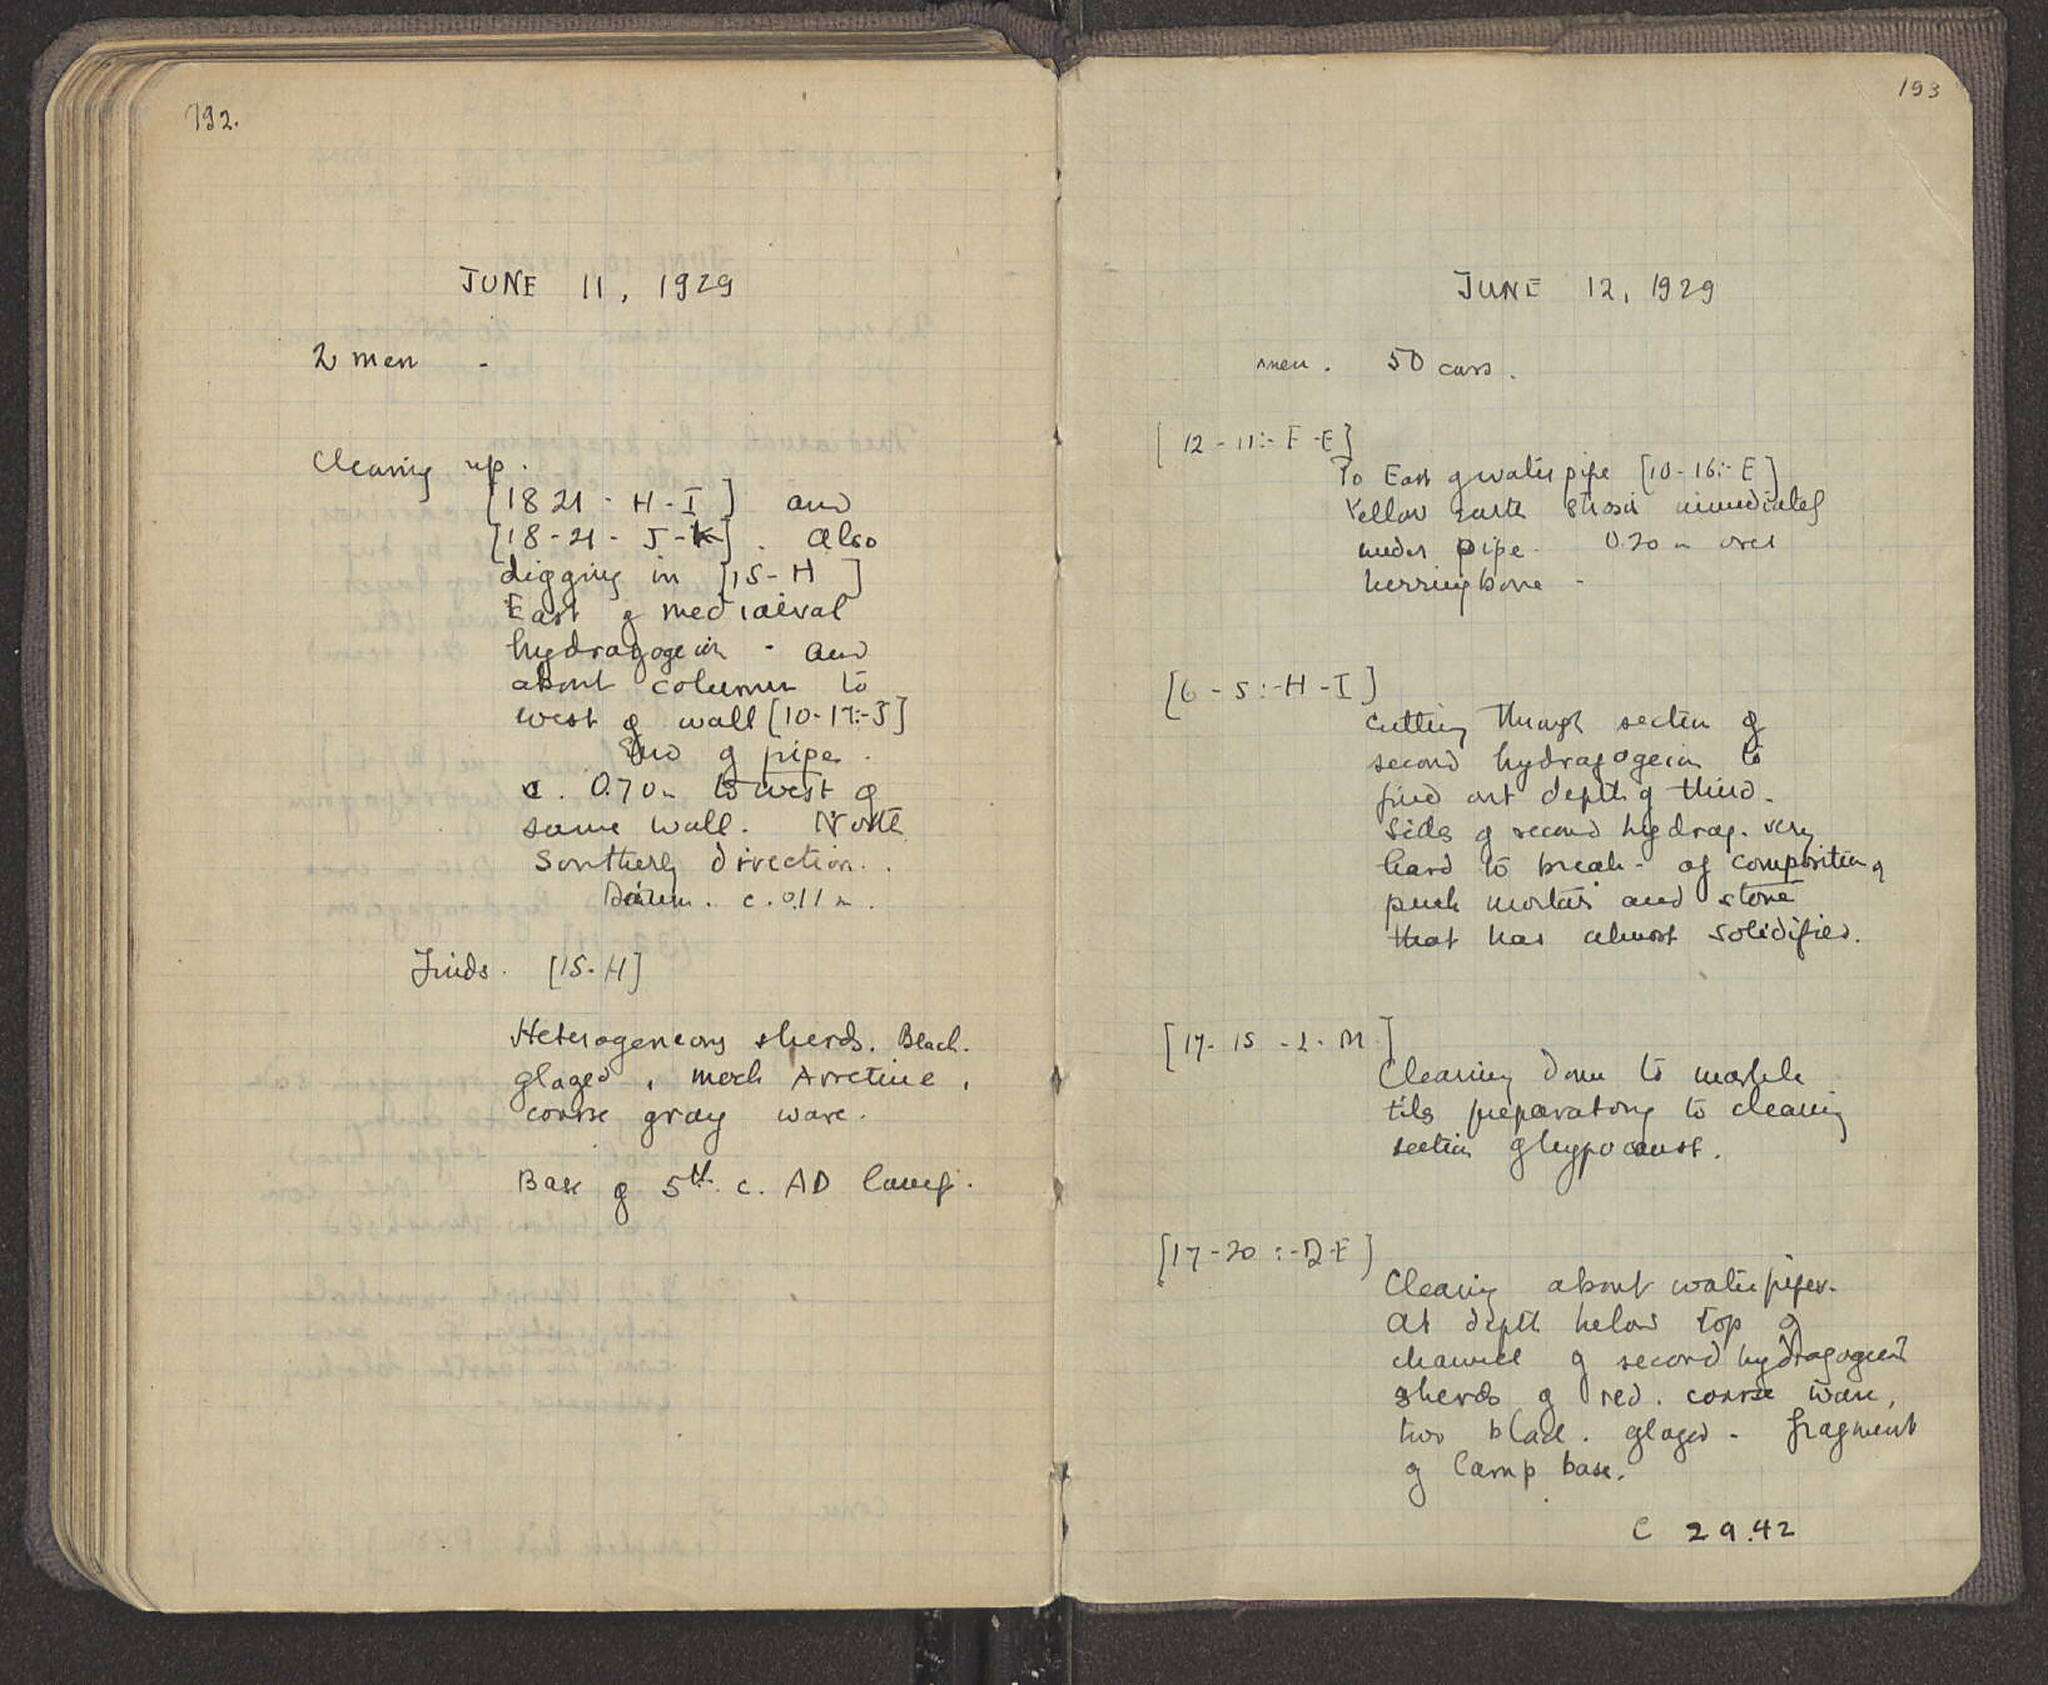 192.
JUNE 11, 1929
2 men -
Cleaning up.
[18 21 - H - I] and
[18 - 21 - J - K]. Also
digging in [15 - H]
East of mediaeval
hydragogeion - and
about column to
west of wall [10-17:-J]
End of pipe.
c. 0.70m to west of
same wall. North
Southerly direction.
Diam. c. 0.11 m.
Finds. [15-H]
Heterogeneous sherds. Black.
glazed, mock Arretine,
coarse gray ware.
Base of 5th. c. AD lamp.
193
JUNE 12, 1929
men. 50 cars.
[12-11:- F-E]
To East of water pipe [10-16:-E]
Yellow earth strosis immediately
under pipe. 0.20 m over
herringbone -
[6-5:-H-I]
cutting through section of
second hydragogeion to
find out depth of third.
Sides of second hydrag. very
hard to break - of composition of
mortar and stone
that has almost solidified.
[17-15 - L - M]
Clearing down to marble
tiles preparatory to cleaning
section of hypocaust.
[17-20:-D-E]
Cleaning about water pipes.
At depth below top of
channel of second hydragogeion
sherds of red. coarse ware,
two black. glazed - fragment
of lamp base.
C 29.42